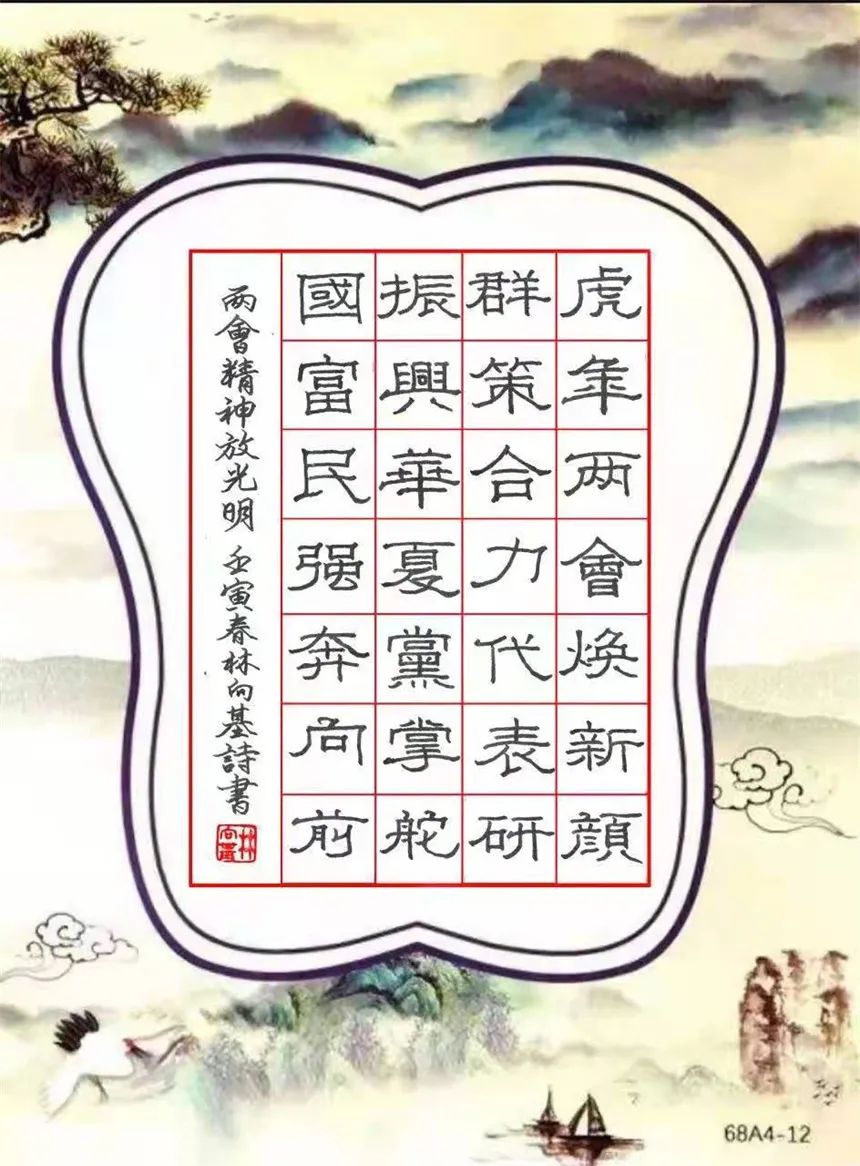 虎年两會焕新顔
群策合力代表研
振興華夏黨掌舵
國富民强奔向前
兩會精神放光明 壬寅春林向基詩書
林向基
68A4-12